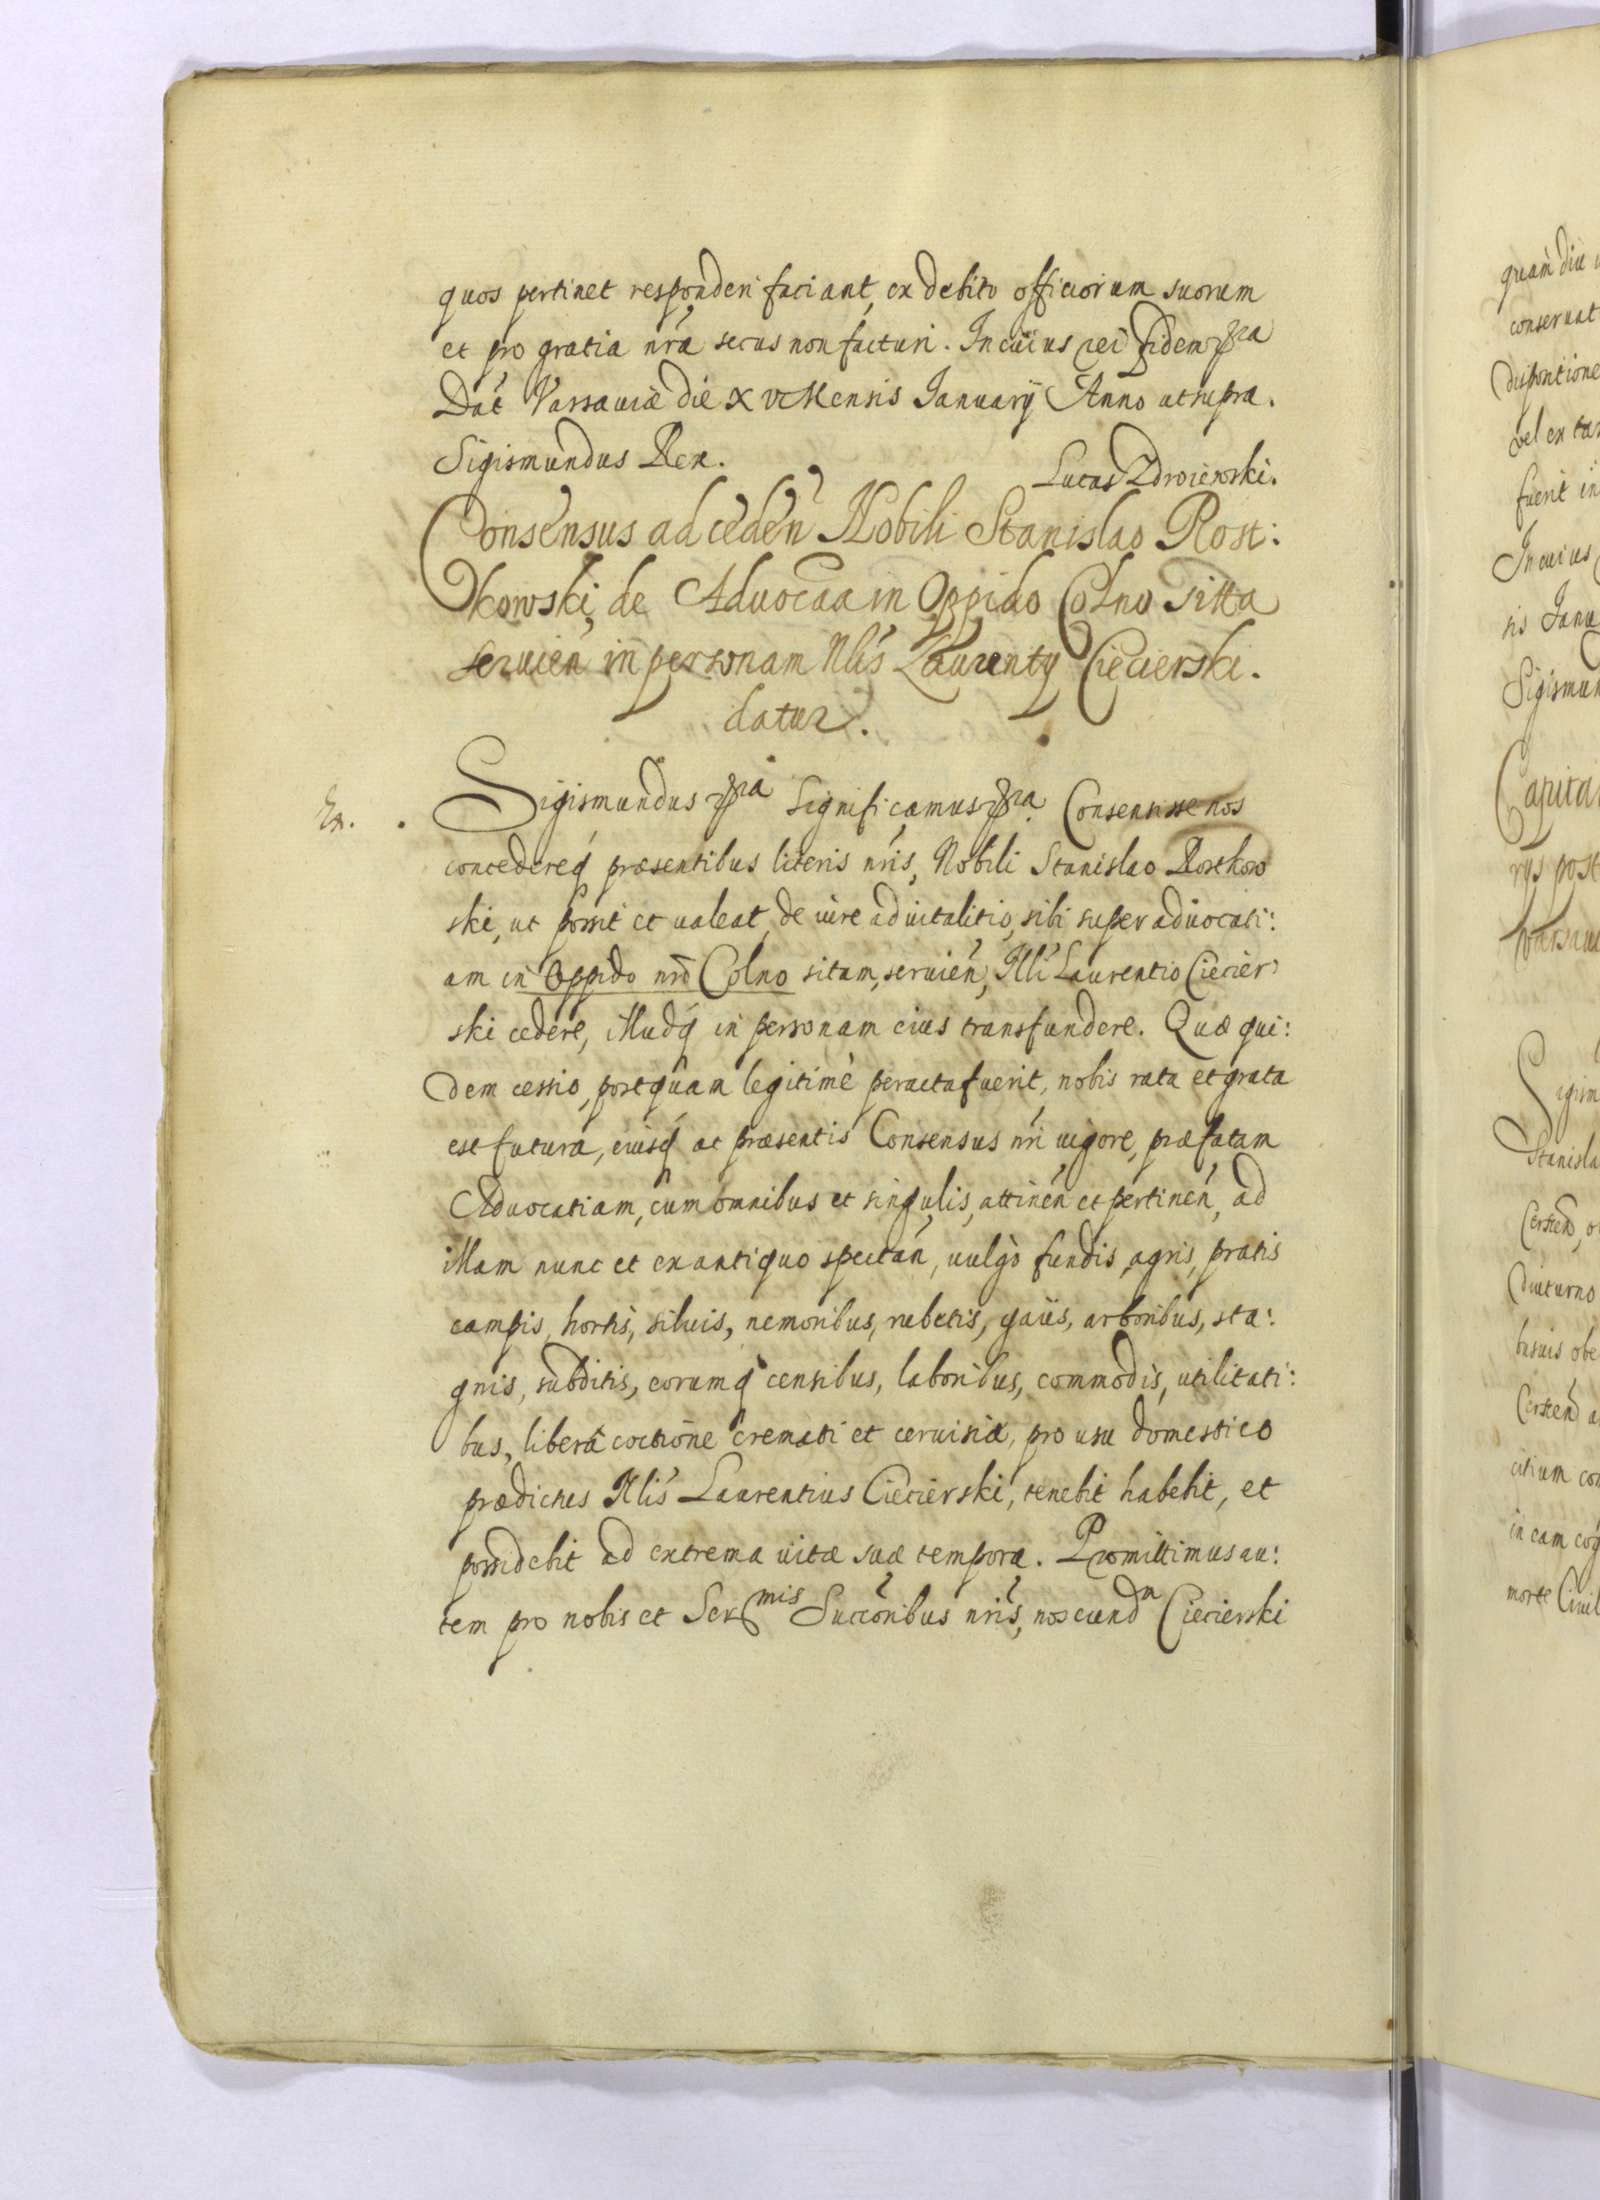 quos pertinet responderi faciant, ex debito officiorum suorum
et pro gratia nra secus non facturi. In cuius rei fidem pra
Dat Varsauiæ die XV Mensis Ianuarij Anno ut supra.
Sigismundus Rex.
Lucas Zdroiewski.
Consensus ad ceden Nobili Stanislao Rost:
kowski, de Aduocaa in Oppido Colno sitta
seruien in personam Nlis Laurenty Ciecierski.
datur.
Ex.
Sigismundus pra Significamus pra. Consensisse nos
concedereq præsentibus literis nris, Nobili Stanislao Rostkow
ski, ut possit et ualeat, de iure aduitalitio, sibi super aduocati:
am in Oppido nro Colno sitam, seruien, Nli Laurentio Ciecier
ski cedere, illudq in personam eius transfundere. Quæ qui:
dem cessio, postquam legitimè peracta fuerit, nobis rata et grata
est futura, eiusq ac præsentis Consensus nri uigore, præfatam
Aduocatiam, cum omnibus et singulis, attinen et pertinen, ad
illam nunc et ex antiquo spectan, uulgò fundis, agris, pratis
campis, hortis, siluis, nemoribus, rubetis, gaiis, arboribus, sta:
gnis, subditis, eorumq censibus, laboribus, commodis, utilitati:
bus, liberâ coctione cremati et ceruisiæ, pro usu domestico
prædictus Nlis Laurentius Ciecierski, tenebit habebit, et
possidebit ad extrema uitæ suæ tempora. Promittimus au:
tem pro nobis et Sermis Succoribus nris, nos eundm Ciecierski
quam diu
conseruat
Dispositione
vel ex
fuerit in
In cuius
sis Janu
Sigismun
Capita
rys post
Varsaui
Sigism
Stanisla
Cersten
diuturno
busuis obe
Cersten a
citium con
in eam
morte Ciuil